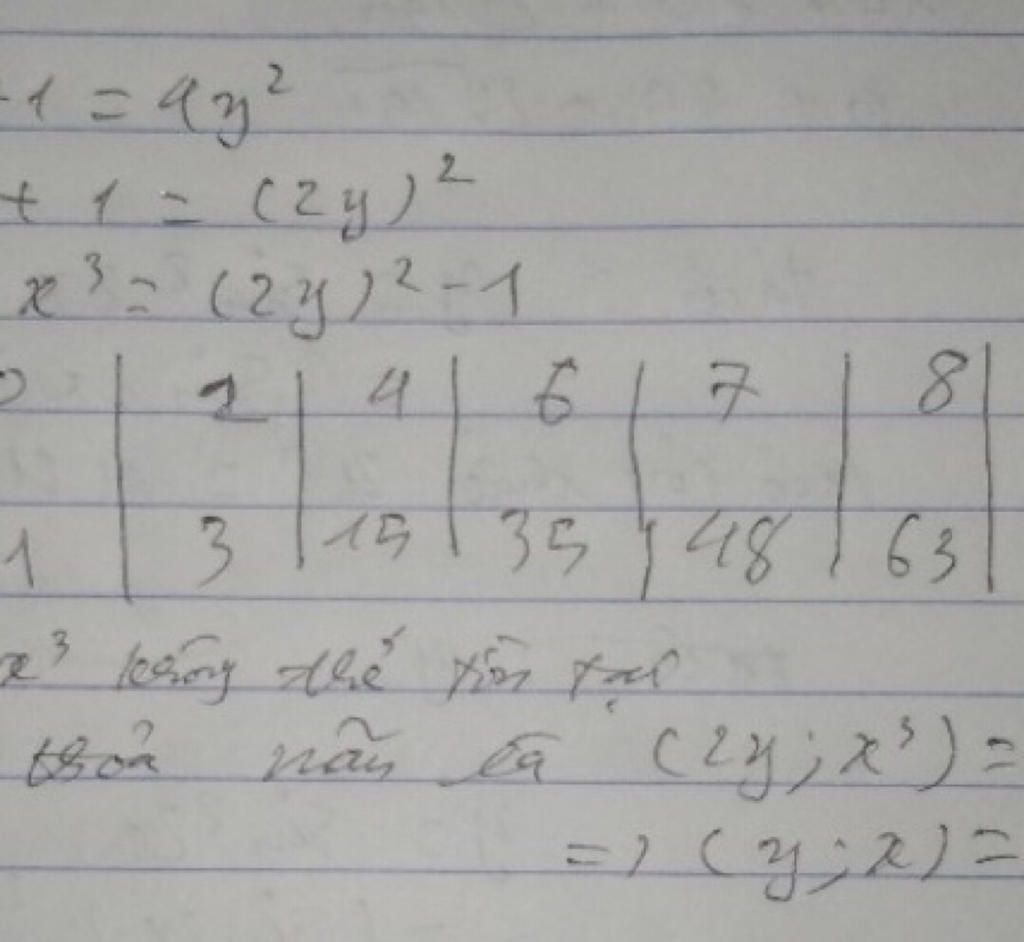 +1 = 4y²
+ 1 = (2y)²
x³ = (2y)² - 1
0 | 2 | 4 | 6 | 7 | 8 |
1 | 3 | 15 | 35 | 48 | 63 |
x³ không thể tồn tại
thỏa mãn là (2y; x³) =
=> (y; x) =